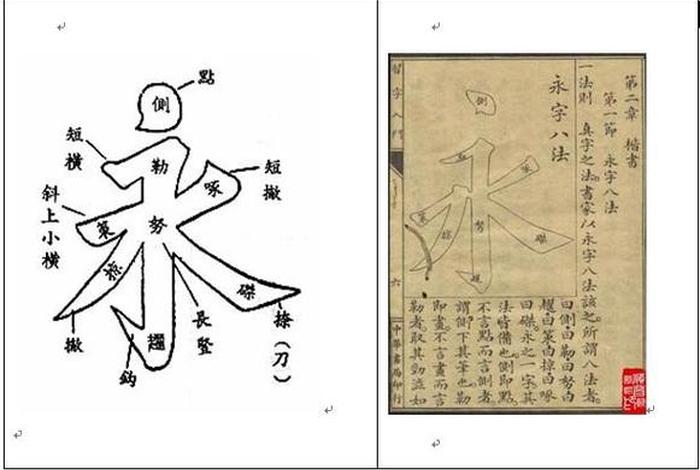 點
側
短橫
勒
短撇
啄
斜上小橫
策
努
掠
磔
長豎
捺(刀)
撇
鈎
趯
第二章 楷書
第一節 永字八法
一法則 真字之法。書家以永字八法該之。所謂八法者。
永字八法
側
勒
啄
策
努
掠
磔
趯
曰側曰勒曰努曰
趯曰策曰掠曰啄
曰磔永之一字其
法皆備也側即點
不言點而言側者
謂側下其筆也勒
即畫不言畫而言
勒者取其勁澁如
習字入門
六
中華書局印行